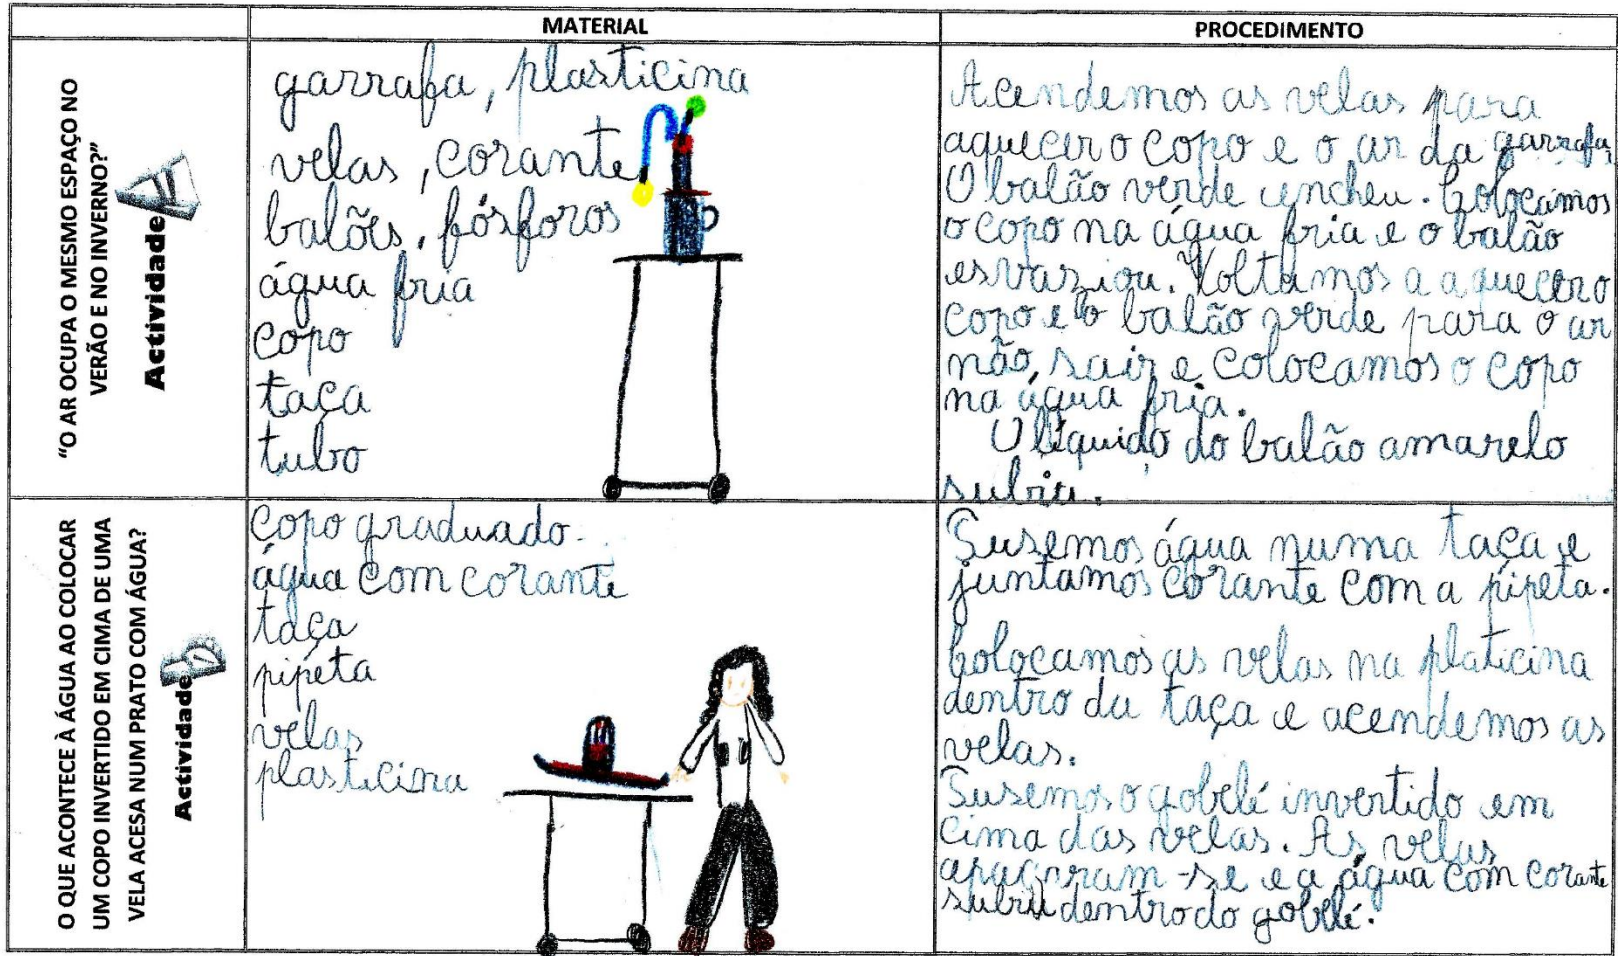 MATERIAL
PROCEDIMENTO
"O AR OCUPA O MESMO ESPAÇO NO
VERÃO E NO INVERNO?"
Actividade
garrafa, plasticina
velas, corante
balões, fósforos
água fria
copo
taça
tubo
Acendemos as velas para
aquecer o copo e o ar da garrafa.
O balão verde encheu. Colocamos
o copo na água fria e o balão
esvaziou. Voltamos a aquecer o
copo e o balão verde para o ar
não sair e colocamos o copo
na água fria.
O líquido do balão amarelo
subiu.
O QUE ACONTECE À ÁGUA AO COLOCAR
UM COPO INVERTIDO EM CIMA DE UMA
VELA ACESA NUM PRATO COM ÁGUA?
Actividade
copo graduado.
água com corante
taça
pipeta
velas
plasticina
Pusemos água numa taça e
juntamos corante com a pipeta.
Colocamos as velas na platicina
dentro da taça e acendemos as
velas.
Pusemos o gobelé invertido em
cima das velas. As velas
apagaram-se e a água com corante
subiu dentro do gobelé.